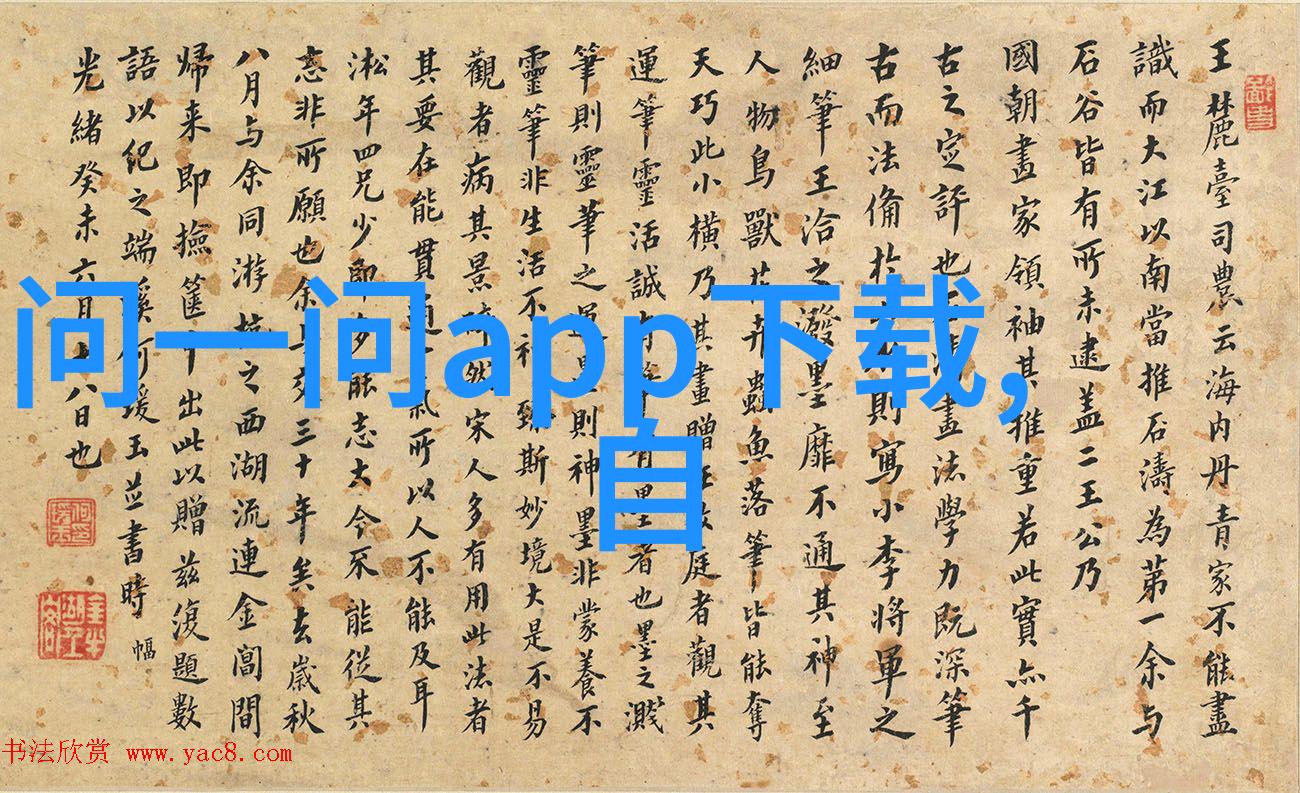 问一问app下载,
自
王麓臺司農云海内丹青家不能盡
識而大江以南當推石濤為第一余与
石谷皆有所未逮盖二王公乃
國朝畫家領袖其推重若此實亦千
古之定評也畫法學力既深筆
古而法備則寫小李將軍之
細筆王洽之潑墨靡不通其神至
人物鳥獸花卉蟲魚落筆皆能奪
天巧此小橫乃其畫贈庭者觀其
運筆靈活誠有者也墨之濺
筆則靈筆之運墨則神墨非蒙養不
靈筆非生活不神臻斯妙境大是不易
觀者病其景碎然宋人多有用此法者
其要在能貫通一氣所以人不能及耳
淞年四兄少即多能志能從其
志非所願也余与交三十年矣去歲秋
八月与余同游杭之西湖流連金閶間
歸来即撿篋中出此以贈兹復題數
語以紀之端溪何瑗玉並書時
幅
光緒癸未六月十八日也
书法欣赏 www.yac8.com